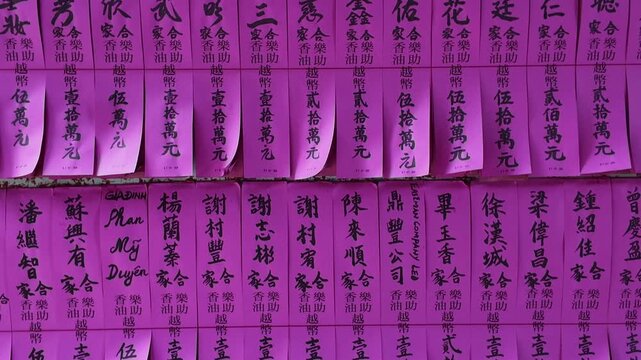 妝合家樂助香油越幣伍萬元
芳合家樂助香油越幣壹拾萬元
欣合家樂助香油越幣伍萬元
武合家樂助香油越幣壹拾萬元
明合家樂助香油越幣壹拾萬元
三合家樂助香油越幣壹拾萬元
慈合家樂助香油越幣貳拾萬元
鑫合家樂助香油越幣貳拾萬元
佑合家樂助香油越幣伍拾萬元
花合家樂助香油越幣伍拾萬元
廷合家樂助香油越幣伍拾萬元
仁合家樂助香油越幣貳佰萬元
合家樂助香油越幣貳拾萬元
潘繼智合家樂助香油越幣伍
蘇興有合家樂助香油越幣伍
GIA ĐÌNH
Phan
Mỹ
Duyên
樂助香油越幣伍
楊蘭蓁合家樂助香油越幣壹
謝村豐合家樂助香油越幣壹
謝志彬合家樂助香油越幣壹
謝村宥合家樂助香油越幣壹
陳來順合家樂助香油越幣壹
鼎豐公司樂助香油越幣壹
COMPANY LED
畢玉香合家樂助香油越幣貳
徐漢城合家樂助香油越幣壹
梁偉昌合家樂助香油越幣壹
鍾紹佳合家樂助香油越幣壹
曾慶合家樂助香油越幣壹